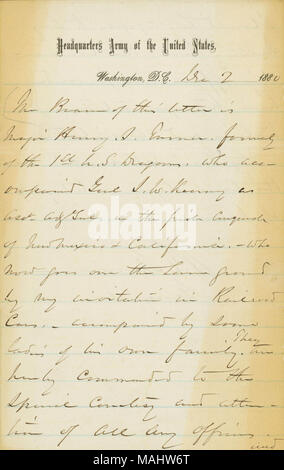 Headquarters Army of the United States.
Washington, D.C. Dec 7 1880
The Bearer of this letter is
Major Henry S. Turner formerly
of the 1st U.S. Dragoons, who acc-
ompanied Genl S. W. Kearny as
asst adj Genl in the
of New Mexico & California. - Who
now goes over the same ground,
by my invitation in Railroad
Cars. - accompanied by some
ladies of his own family. They are
hereby commended to the
special Courtesy and atten-
tion of all army officers
and
alamy
Image ID: MAHW6T
www.alamy.com